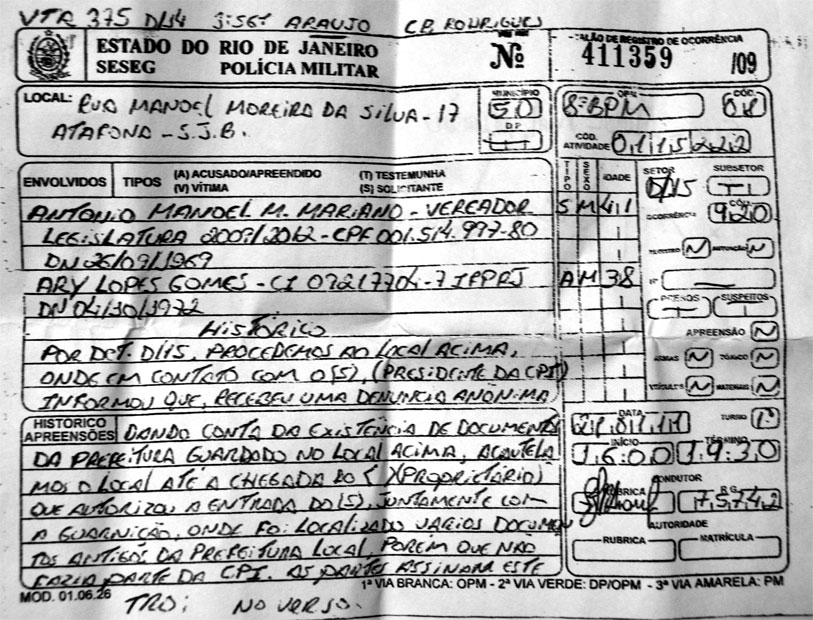 VTR 375 D/14 3º SGT ARAUJO CB RODRIGUES
ESTADO DO RIO DE JANEIRO
SESEG POLÍCIA MILITAR
Nº
TALÃO DE REGISTRO DE OCORRÊNCIA
411359 /09
LOCAL: RUA MANOEL MOREIRA DA SILVA - 17
ATAFONA - S.J.B.
MUNICÍPIO
50
D.P.
OPM
8º BPM
CÓD.
08
CÓD. ATIVIDADE 0115222
ENVOLVIDOS
TIPOS
(A) ACUSADO/APREENDIDO (T) TESTEMUNHA
(V) VÍTIMA (S) SOLICITANTE
TIPO
SEXO
IDADE
SETOR
D/15
SUBSETOR
ANTONIO MANOEL M. MARIANO - VEREADOR S M 41
OCORRÊNCIA
CÓD.
920
LEGISLATURA 2009/2012 - CPF 001.514.997-80
DN 26/09/1969
N N
ARY LOPES GOMES - CI 07217704-7 IFPRJ A M 38
Nº
DN 04/10/1972
PRESOS SUSPEITOS
HISTÓRICO
APREENSÃO N
POR DET. D/15, PROCEDEMOS AO LOCAL ACIMA,
ARMAS N TÓXICO N
ONDE EM CONTATO COM O (S), (PRESIDENTE DA CPI)
VEÍCULOS N MATERIAIS N
INFORMOU QUE, RECEBEU UMA DENUNCIA ANÔNIMA
HISTÓRICO
APREENSÕES
DANDO CONTA DA EXISTÊNCIA DE DOCUMENTOS
DATA
TURNO 1º
DA PREFEITURA GUARDADO NO LOCAL ACIMA, ACAUTELA
INÍCIO
16:00
TÉRMINO
19:30
MOS O LOCAL ATÉ A CHEGADA DO (PROPRIETÁRIO)
QUE AUTORIZOU A ENTRADA DO (S), JUNTAMENTE COM
CONDUTOR
RUBRICA
RG
75742
A GUARNIÇÃO, ONDE FOI LOCALIZADO VÁRIOS DOCUMEN
AUTORIDADE
TOS ANTIGOS DA PREFEITURA LOCAL, PORÉM QUE NÃO
RUBRICA
MATRÍCULA
FAZIA PARTE DA CPI. AS PARTES ASSINAM ESTE
1ª VIA BRANCA: OPM - 2ª VIA VERDE: DP/OPM - 3ª VIA AMARELA: PM
MOD. 01.06.26
TRO: NO VERSO.